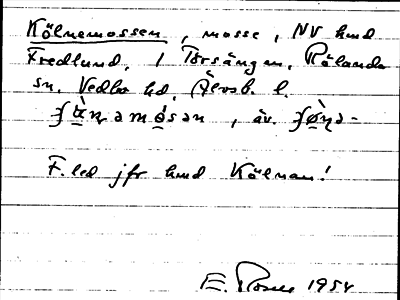 Kölnemossen, mosse, NV hmd
Fredlund, i Torsängen, Rölanda
sn, Vedbo hd, Älvsb. l.
, äv.
F.led jfr hmd Kölnan!
E. 1954